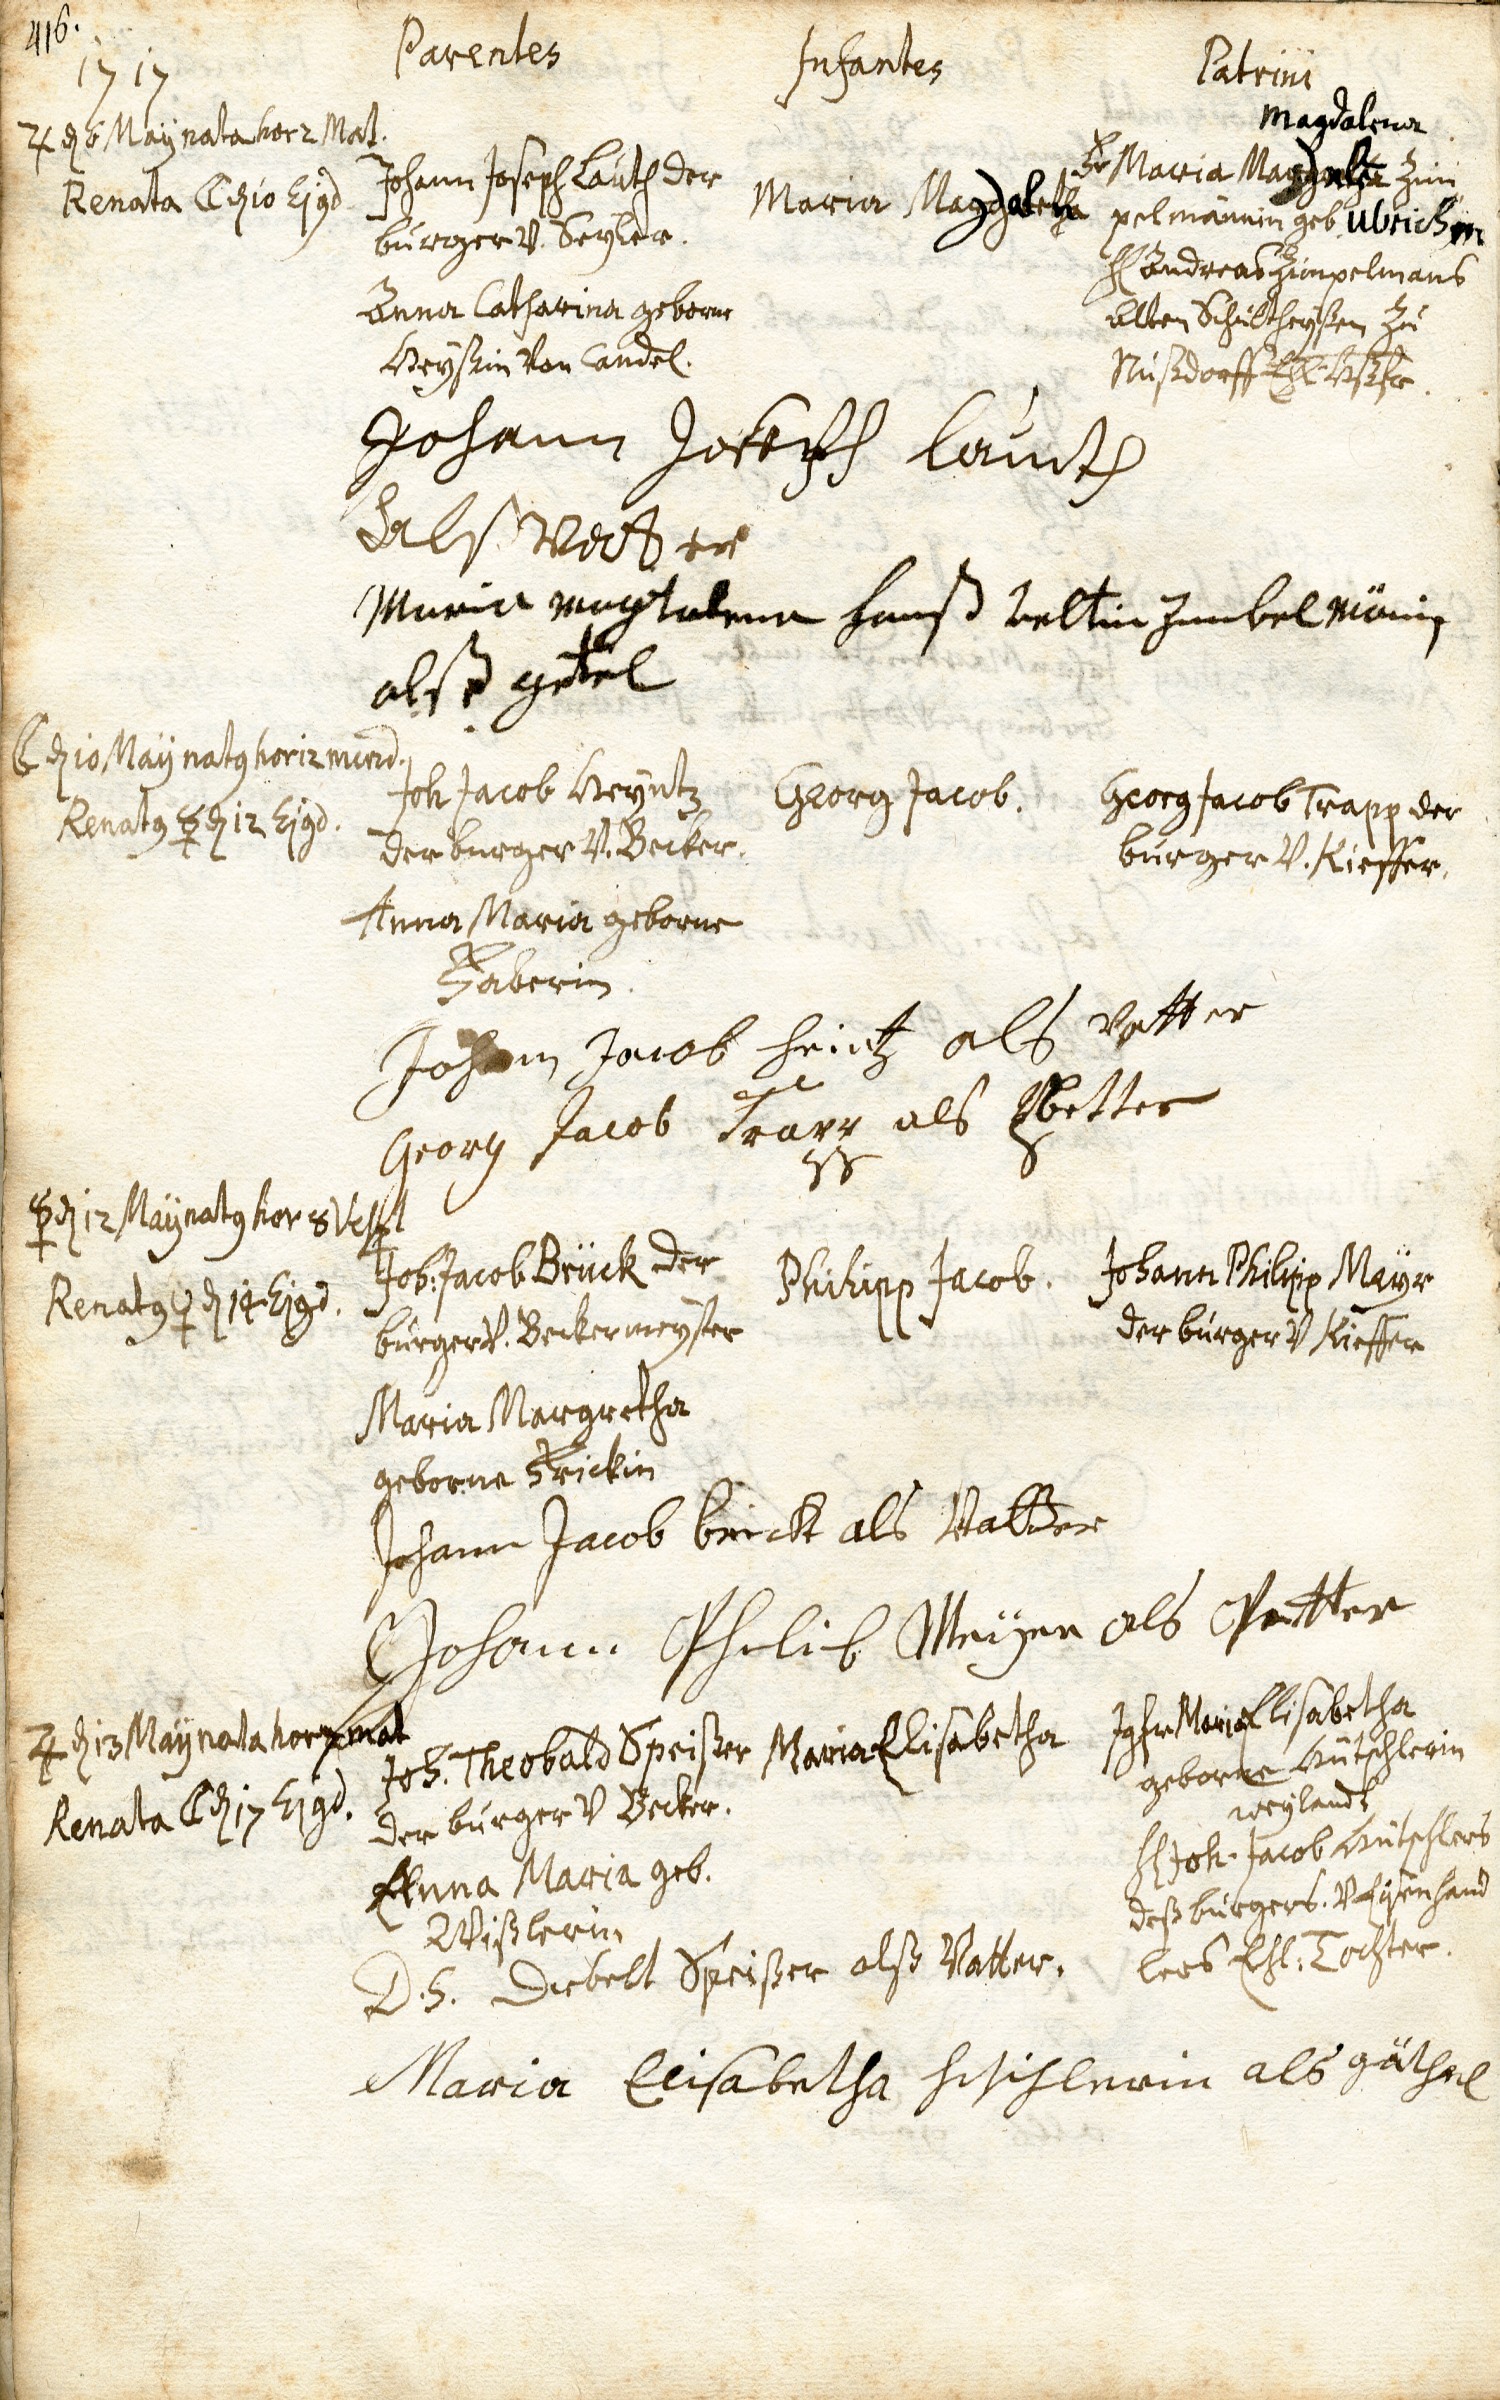 416.
1717
Parentes
Infantes
Patrini
♃ d 6 Maÿ nata hor 2 Mat.
Renata ☾ d 10 Ejgd
Johann Joseph Lauth der
burger V. Seyler.
Anna Catharina geborne
Heyßin von Candel.
Maria Magdalena
Magdalena
Fr Maria Zim
pelmännin geb. Ulrichin
H Andreas Zimpelmans
alten Schultheyßen zu
Nußdorff Ehl. Hßfr.
Johann Joseph Lauth
als Vatter
Maria magdalena hanß Veltin Zimbelmänin
alß getel
☾ d 10 Maÿ natq hor 12 merid.
Renatq ☿ d 12 Ejgd.
Joh Jacob Heyntz
der burger V. Becker.
Anna Maria geborne
Faberin.
Georg Jacob.
Georg Jacob Trapp der
burger V. Kieffer.
Johann Jacob heintz als Vatter
Georg Jacob Trapp als Pfetter
☿ d 12 Maÿ natq hor 8 Vesp
Renatq ♀ d 14 Ejgd.
Joh: Jacob Brück der
burger V. Beckermeyster
Maria Margretha
geborne Frickin
Philipp Jacob.
Johann Philipp Mayr
der burger V Kieffer
Johann Jacob brickt als Vatter
Johann Philib Meÿer als Petter
♃ d 13 Maÿ nata hor mat
Renata ☾ d 17 Ejgd.
Joh. Theobald Speißer
der burger V Becker.
Anna Maria geb.
Wißlerin
Maria Elisabetha
Jgfr Maria Elisabetha
geborne Hütschlerin
weylandt
H Joh. Jacob Hütschlers
deß burgers. V Eysenhand
lers Ehl: Tochter.
D. H. Diebelt Speißer alß Vatter.
Maria Elisabetha als göthel